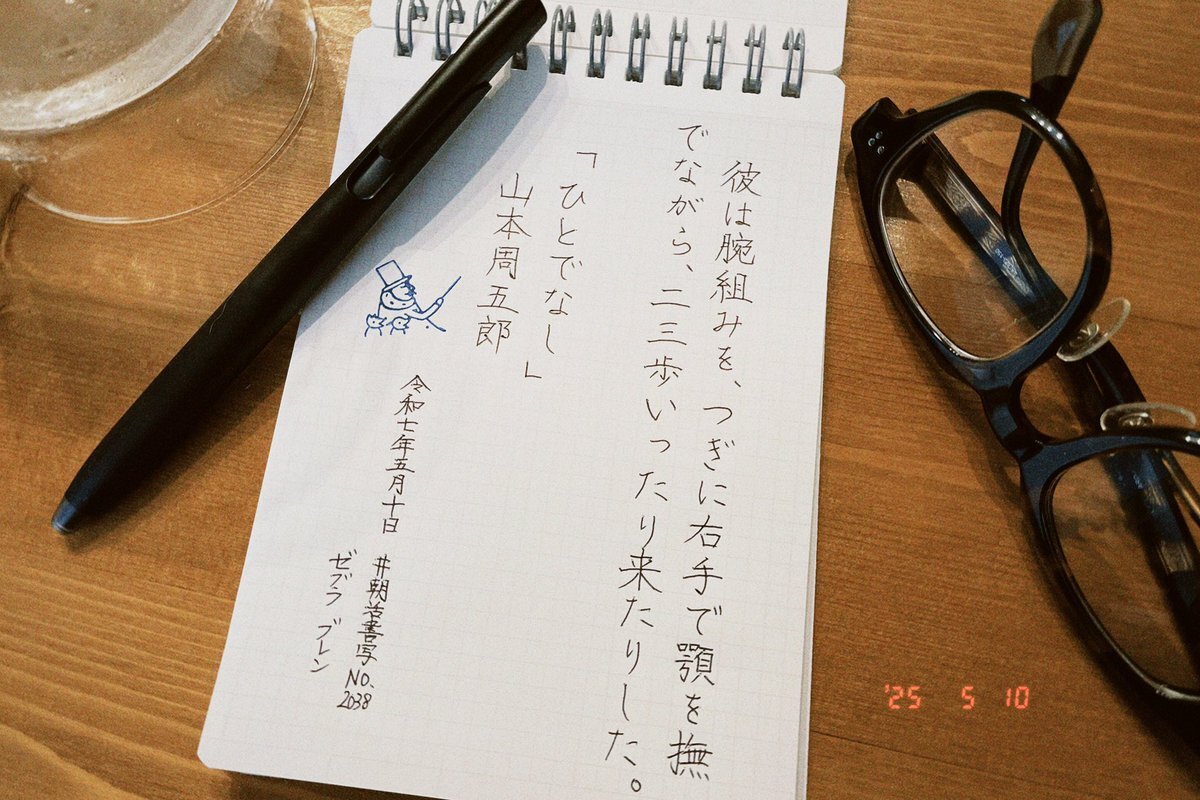 彼は腕組みを、つぎに右手で顎を撫
でながら、二三歩いったり来たりした。
「ひとでなし」
山本周五郎
令和七年五月十日
#朝活書写 NO.2038
ゼブラ ブレン
'25 5 10